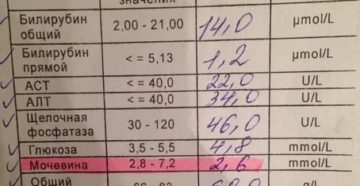 значения
Билирубин общий 2,00 - 21,00 14,0 µmol/L
Билирубин прямой <= 5,13 1,2 µmol/L
АСТ <= 40,0 22,0 U/L
АЛТ <= 40,0 34,0 U/L
Щелочная фосфатаза 30 - 120 46,0 U/L
Глюкоза 3,5 - 5,5 4,8 mmol/L
Мочевина 2,8 - 7,2 2,6 mmol/L
Общий